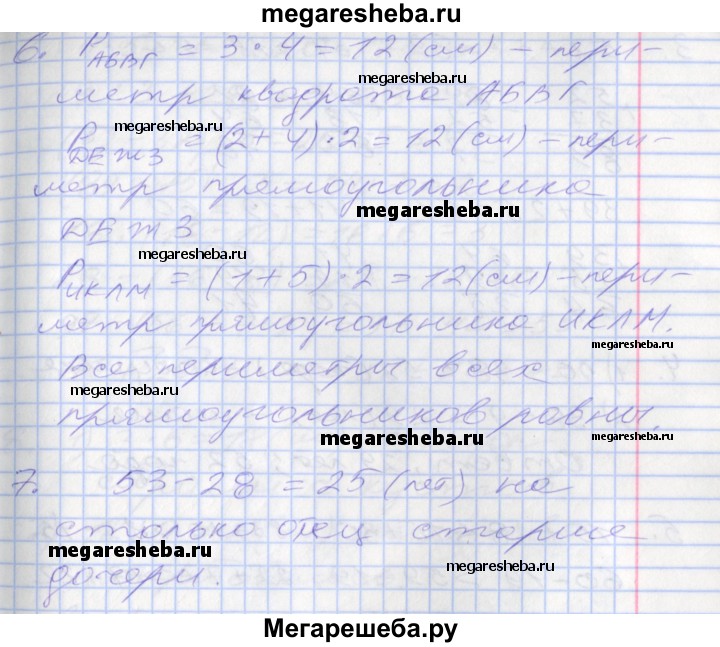 megaresheba.ru
6. PАБВГ = 3 · 4 = 12 (см) – пери-
megaresheba.ru
метр квадрата АБВГ
megaresheba.ru
PДЕЖЗ = (2 + 4) · 2 = 12 (см) – пери-
метр прямоугольника
megaresheba.ru
ДЕЖЗ
megaresheba.ru
PИКЛМ = (1 + 5) · 2 = 12 (см) – пери-
метр прямоугольника ИКЛМ.
megaresheba.ru
Все периметры всех
megaresheba.ru
прямоугольников равны.
megaresheba.ru
megaresheba.ru
7. 53 – 28 = 25 (лет) на
столько отец старше
megaresheba.ru
megaresheba.ru
дочери.
megaresheba.ru
Мегарешеба.ру